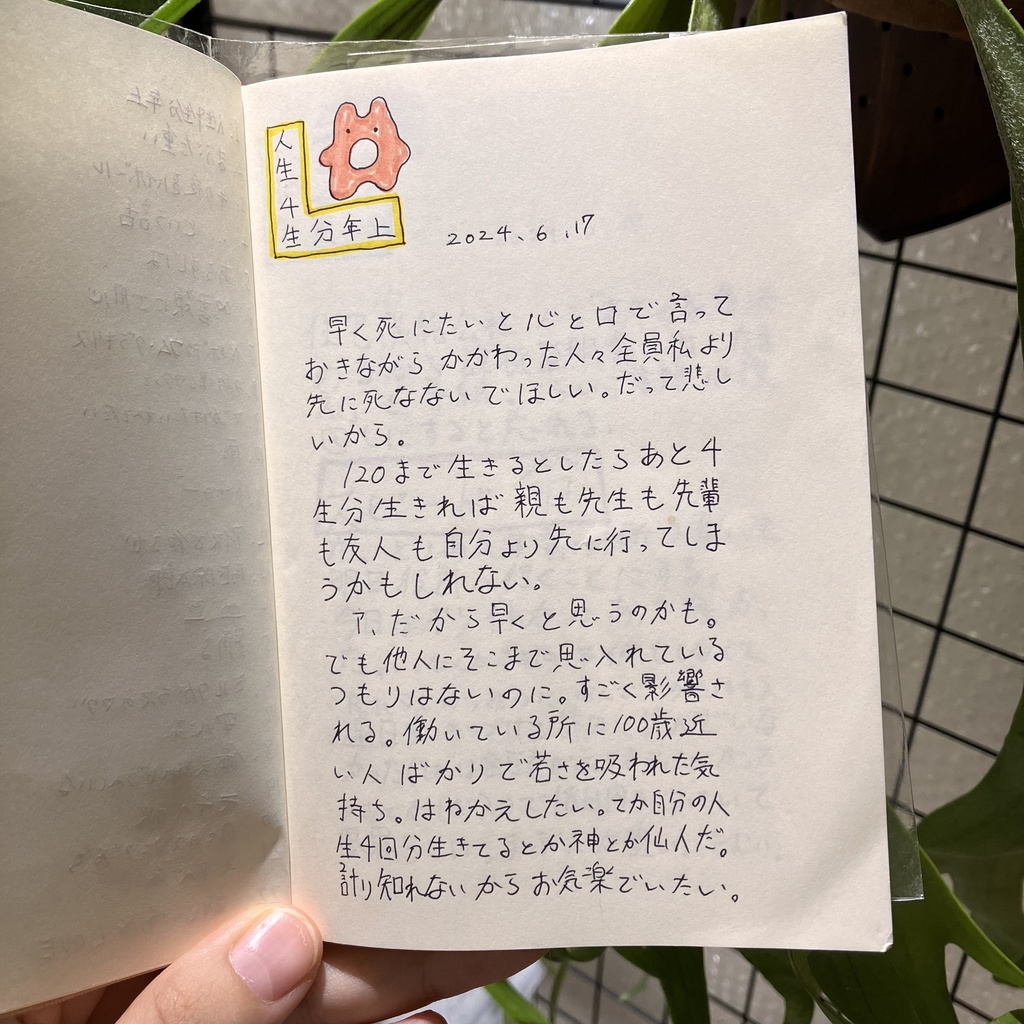 人生4生分年上
2024.6.17
早く死にたいと心と口で言って
おきながら かかわった人々全員私より
先に死なないでほしい。だって悲し
いから。
120まで生きるとしたらあと4
生分生きれば親も先生も先輩
も友人も自分より先に行ってしま
うかもしれない。
ア、だから早くと思うのかも。
でも他人にそこまで思入れている
つもりはないのに。すごく影響さ
れる。働いている所に100歳近
い人ばかりで若さを吸われた気
持ち。はねかえしたい。てか自分の人
生4回分生きてるとか神とか仙人だ。
計り知れないからお気楽でいたい。